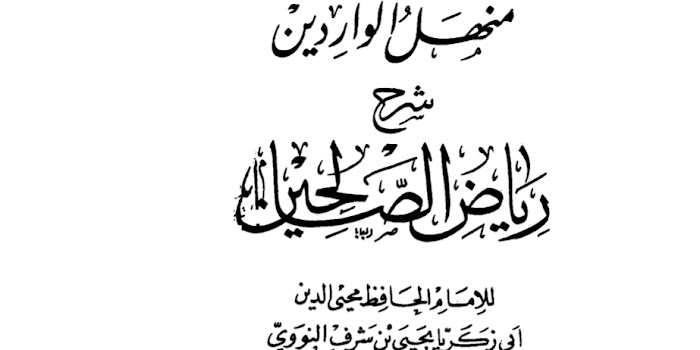 منهل الواردين
شرح
رياض الصّالحين
للإمام الحافظ محيي الدين
أبي زكريا يحيى بن شرف النووي